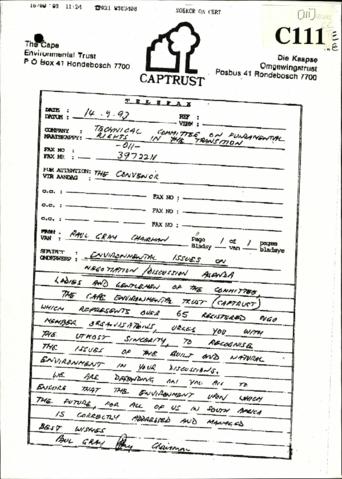 The Cape
Environmental Trust
P O Box 41 Rondebosch 7700
CAPTRUST
C111
Die Kaapse
Omgewingstrust
Posbus 41 Rondebosch 7700
TELEFAX
DATE :
DATUM : 14.9.93 REF :
VERW :
COMPANY : TECHNICAL COMMITTEE ON FUNDAMENTAL
MAATSKAPPY: RIGHTS IN THE TRANSITION
FAX NO : -011-
FAX NR : 3972211
FOR ATTENTION: THE CONVENOR
VIR AANDAG :
c.c. : FAX NO :
c.c. : FAX NO :
c.c. : FAX NO :
FROM : PAUL GRAY CHAIRMAN Page 1 of 1 pages
VAN : Bladsy van bladsye
SUBJECT : ENVIRONMENTAL ISSUES ON
ONDERWERP : NEGOTIATION/DISCUSSION AGENDA
LADIES AND GENTLEMEN OF THE COMMITTEE
THE CAPE ENVIRONMENTAL TRUST (CAPTRUST)
WHICH REPRESENTS OVER 65 REGISTERED NGO
MEMBER ORGANISATIONS, URGES YOU WITH
THE UTMOST SINCERITY, TO RECOGNISE
THE ISSUES OF THE BUILT AND NATURAL
ENVIRONMENT IN YOUR DISCUSSIONS.
WE ARE DEPENDING ON YOU ALL TO
ENSURE THAT THE ENVIRONMENT UPON WHICH
THE FUTURE, FOR ALL OF US IN SOUTH AFRICA
IS CORRECTLY ADDRESSED AND MANAGED
BEST WISHES
PAUL GRAY Chairman